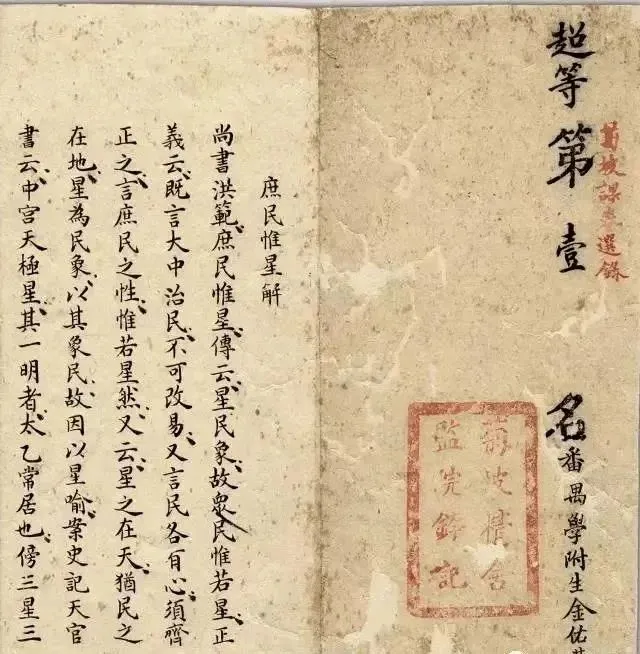 超等第壹
名
番禺學附生金佑
菊坡課卷選錄
菊坡精舍
監院鈐記
庶民惟星解
尚書洪範庶民惟星傳云星民象故眾民惟若星正
義云既言大中治民不可改易又言民各有心須齊
正之言庶民之性惟若星然又云星之在天猶民之
在地星為民象以其象民故因以星喻案史記天官
書云中宮天極星其一明者太乙常居也傍三星三